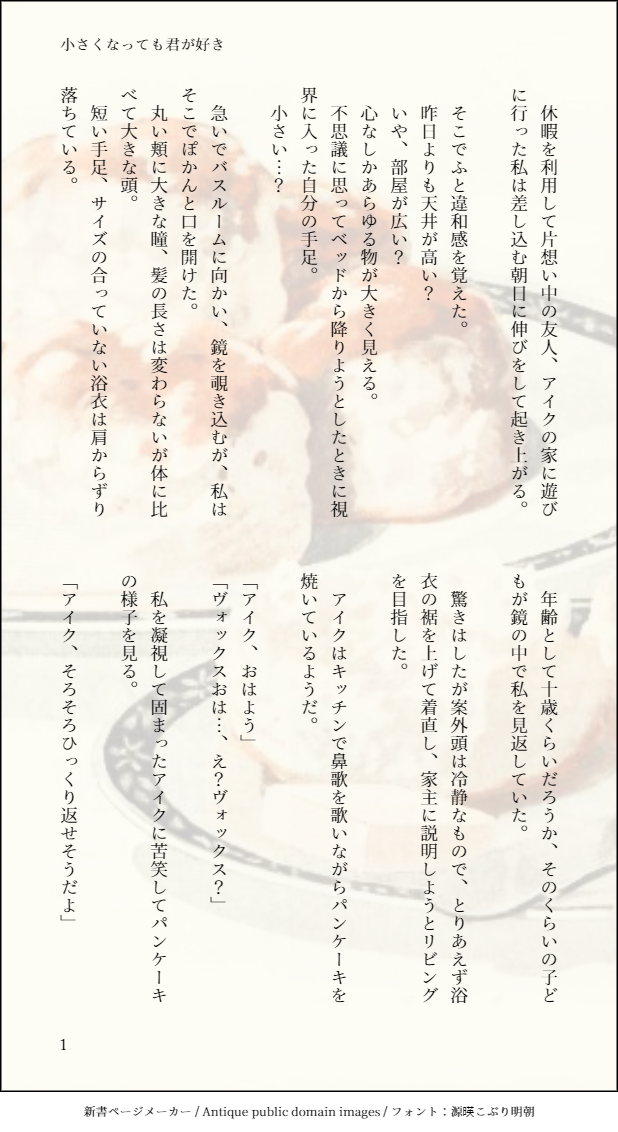 小さくなっても君が好き
休暇を利用して片想い中の友人、アイクの家に遊び
に行った私は差し込む朝日に伸びをして起き上がる。
そこでふと違和感を覚えた。
昨日よりも天井が高い?
いや、部屋が広い?
心なしかあらゆる物が大きく見える。
不思議に思ってベッドから降りようとしたときに視
界に入った自分の手足。
小さい…?
急いでバスルームに向かい、鏡を覗き込むが、私は
そこでぽかんと口を開けた。
丸い頬に大きな瞳、髪の長さは変わらないが体に比
べて大きな頭。
短い手足、サイズの合っていない浴衣は肩からずり
落ちている。
年齢として十歳くらいだろうか、そのくらいの子ど
もが鏡の中で私を見返していた。
驚きはしたが案外頭は冷静なもので、とりあえず浴
衣の裾を上げて着直し、家主に説明しようとリビング
を目指した。
アイクはキッチンで鼻歌を歌いながらパンケーキを
焼いているようだ。
「アイク、おはよう」
「ヴォックスおは…、え?ヴォックス?」
私を凝視して固まったアイクに苦笑してパンケーキ
の様子を見る。
「アイク、そろそろひっくり返せそうだよ」
1
新書ページメーカー / Antique public domain images / フォント：源暎こぶり明朝